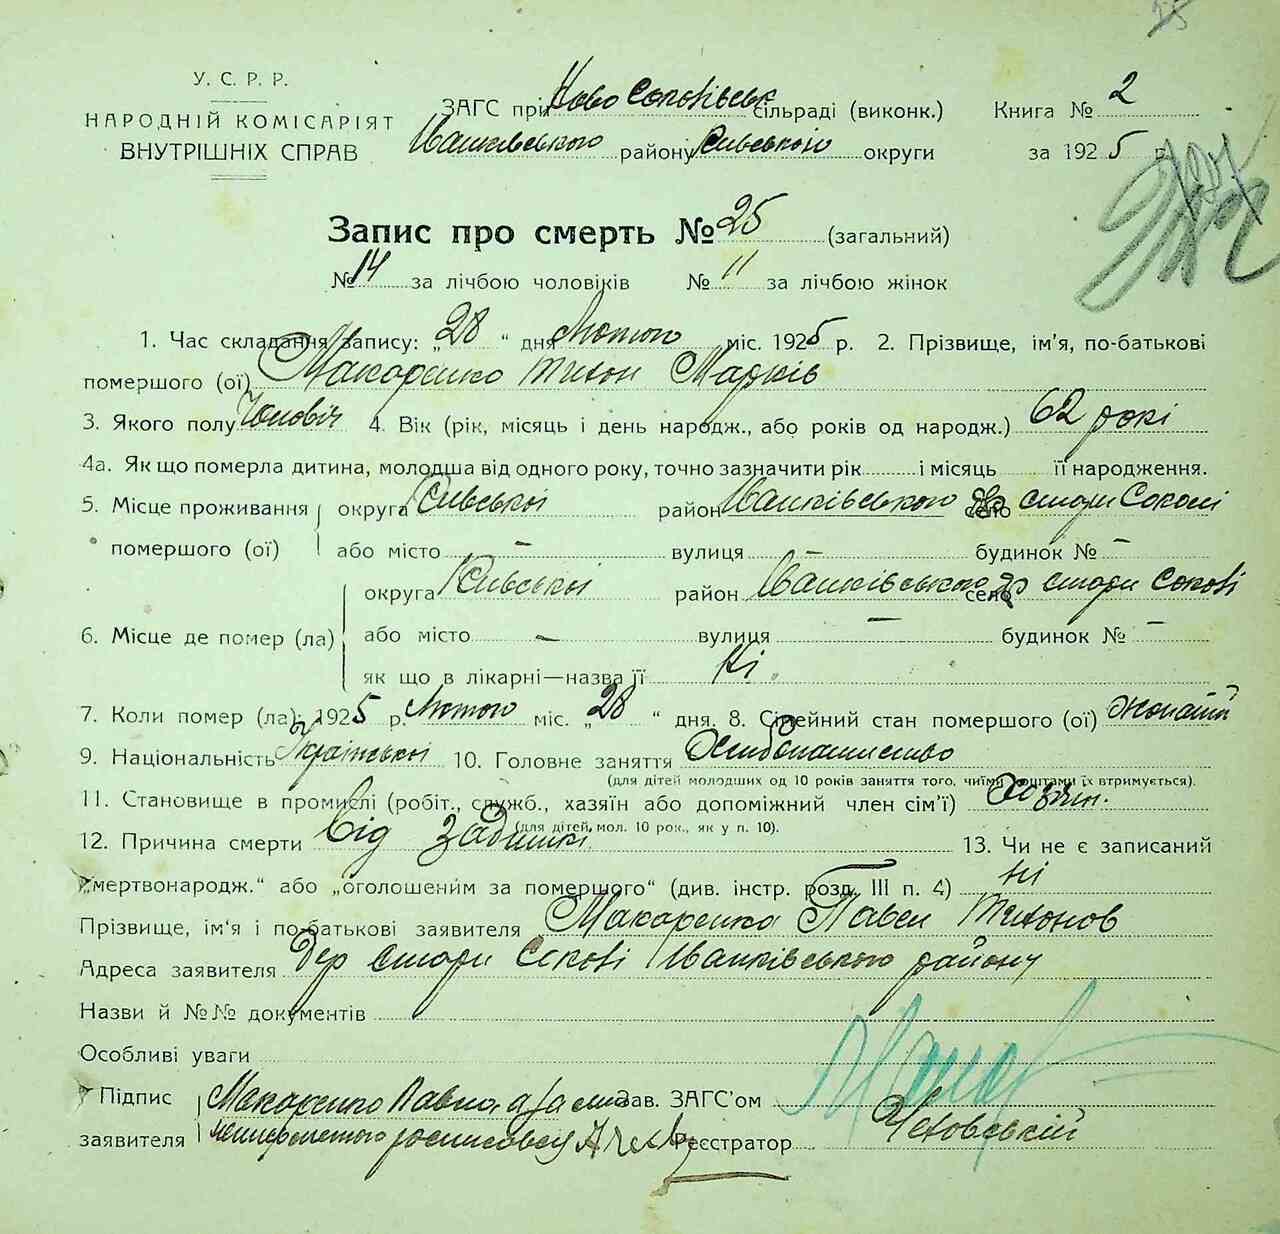 У. С. Р. Р.
НАРОДНІЙ КОМІСАРІЯТ
ВНУТРІШНІХ СПРАВ
ЗАГС при Ново Соколівськ сільраді (виконк.)
Іванківського району Київської округи
Книга № 2
за 1925 р.
Запис про смерть № 25 (загальний)
№ 14 за лічбою чоловіків № 11 за лічбою жінок
1. Час складання запису: „28“ дня Лютого міс. 1925 р. 2. Прізвище, ім'я, по-батькові
помершого (ої) Макаренко Тихон Марків
3. Якого полу Чоловіч 4. Вік (рік, місяць і день народж., або років од народж.) 62 рокі
4а. Як що померла дитина, молодша від одного року, точно зазначити рік і місяць її народження.
5. Місце проживання округа Київської район Іванківського село стари Соколі
помершого (ої) або місто — вулиця — будинок № —
округа Київської район Іванківського село стари Соколі
6. Місце де помер (ла) або місто — вулиця — будинок № —
як що в лікарні—назва її Ні.
7. Коли помер (ла): 1925 р. Лютого міс. „28“ дня. 8. Сімейний стан помершого (ої) жонатій
9. Національність Української 10. Головне заняття
(для дітей молодших од 10 років заняття того, чиїми коштами їх втримується).
11. Становище в промислі (робіт., служб., хазяїн або допоміжний член сім'ї)
(для дітей мол. 10 рок., як у п. 10).
12. Причина смерти Від Задишкі 13. Чи не є записаний
„мертвонародж.“ або „оголошеним за помершого“ (див. інстр. розд. III п. 4) ні
Прізвище, ім'я і по-батькові заявителя Макаренко Павел Тихонов
Адреса заявителя Дер Стари Соколі Іванківського району
Назви й №№ документів
Особливі уваги
Підпис Макаренко Павла а за Зав. ЗАГС'ом
заявителя неграмотного росписовся Реєстратор